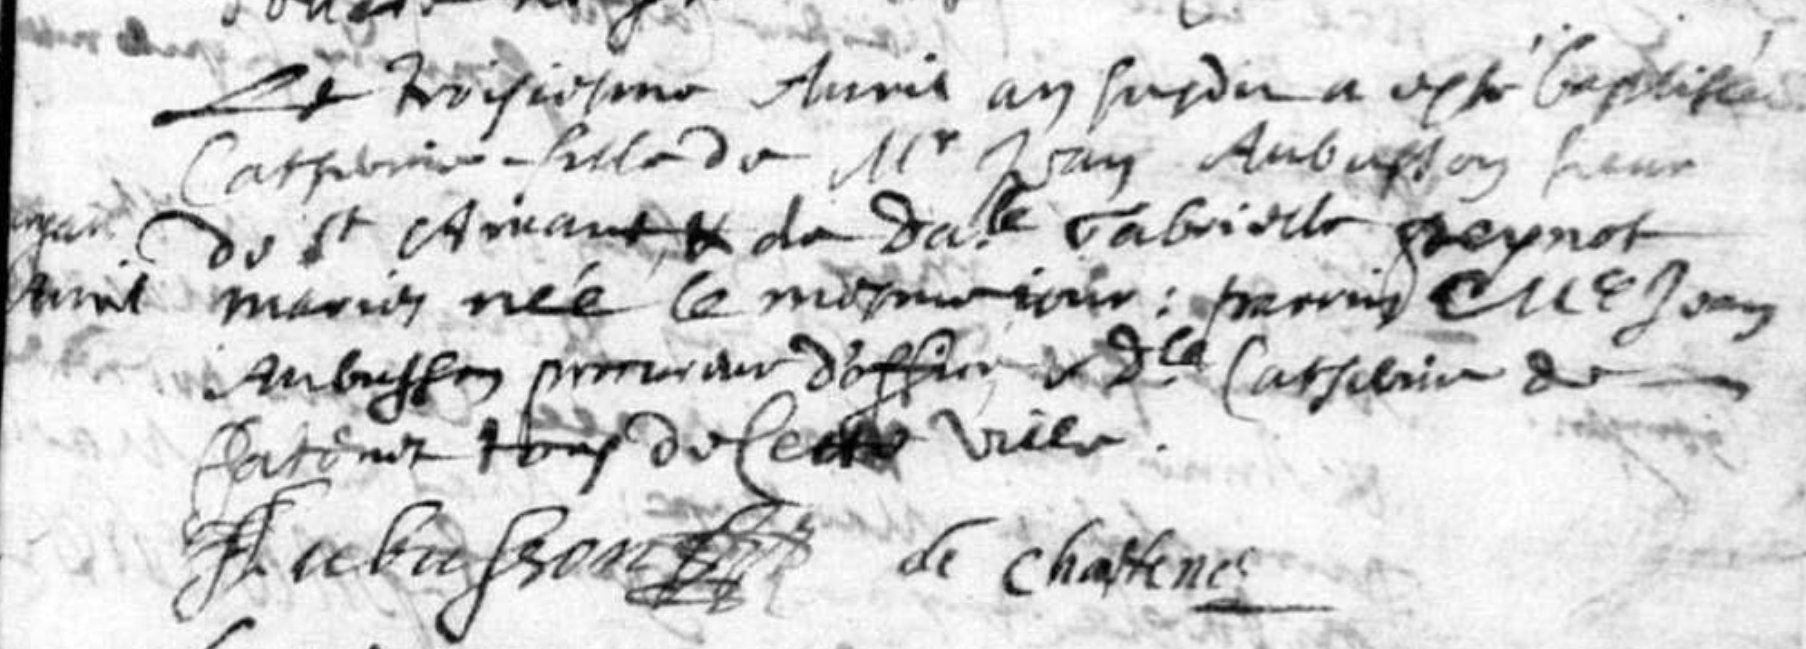 Le troisiesme Auril an susdit a esté baptisée
Catherine fille de Mr Jean Aubusson sieur
de St Amant & de Dalle Gabrielle Peynot
Auril mariés née le mesme iour : parrin Me Jean
Aubusson procureur d'office & Dle Catherine de
tous de Cette ville .
Aubusson de Chastenet